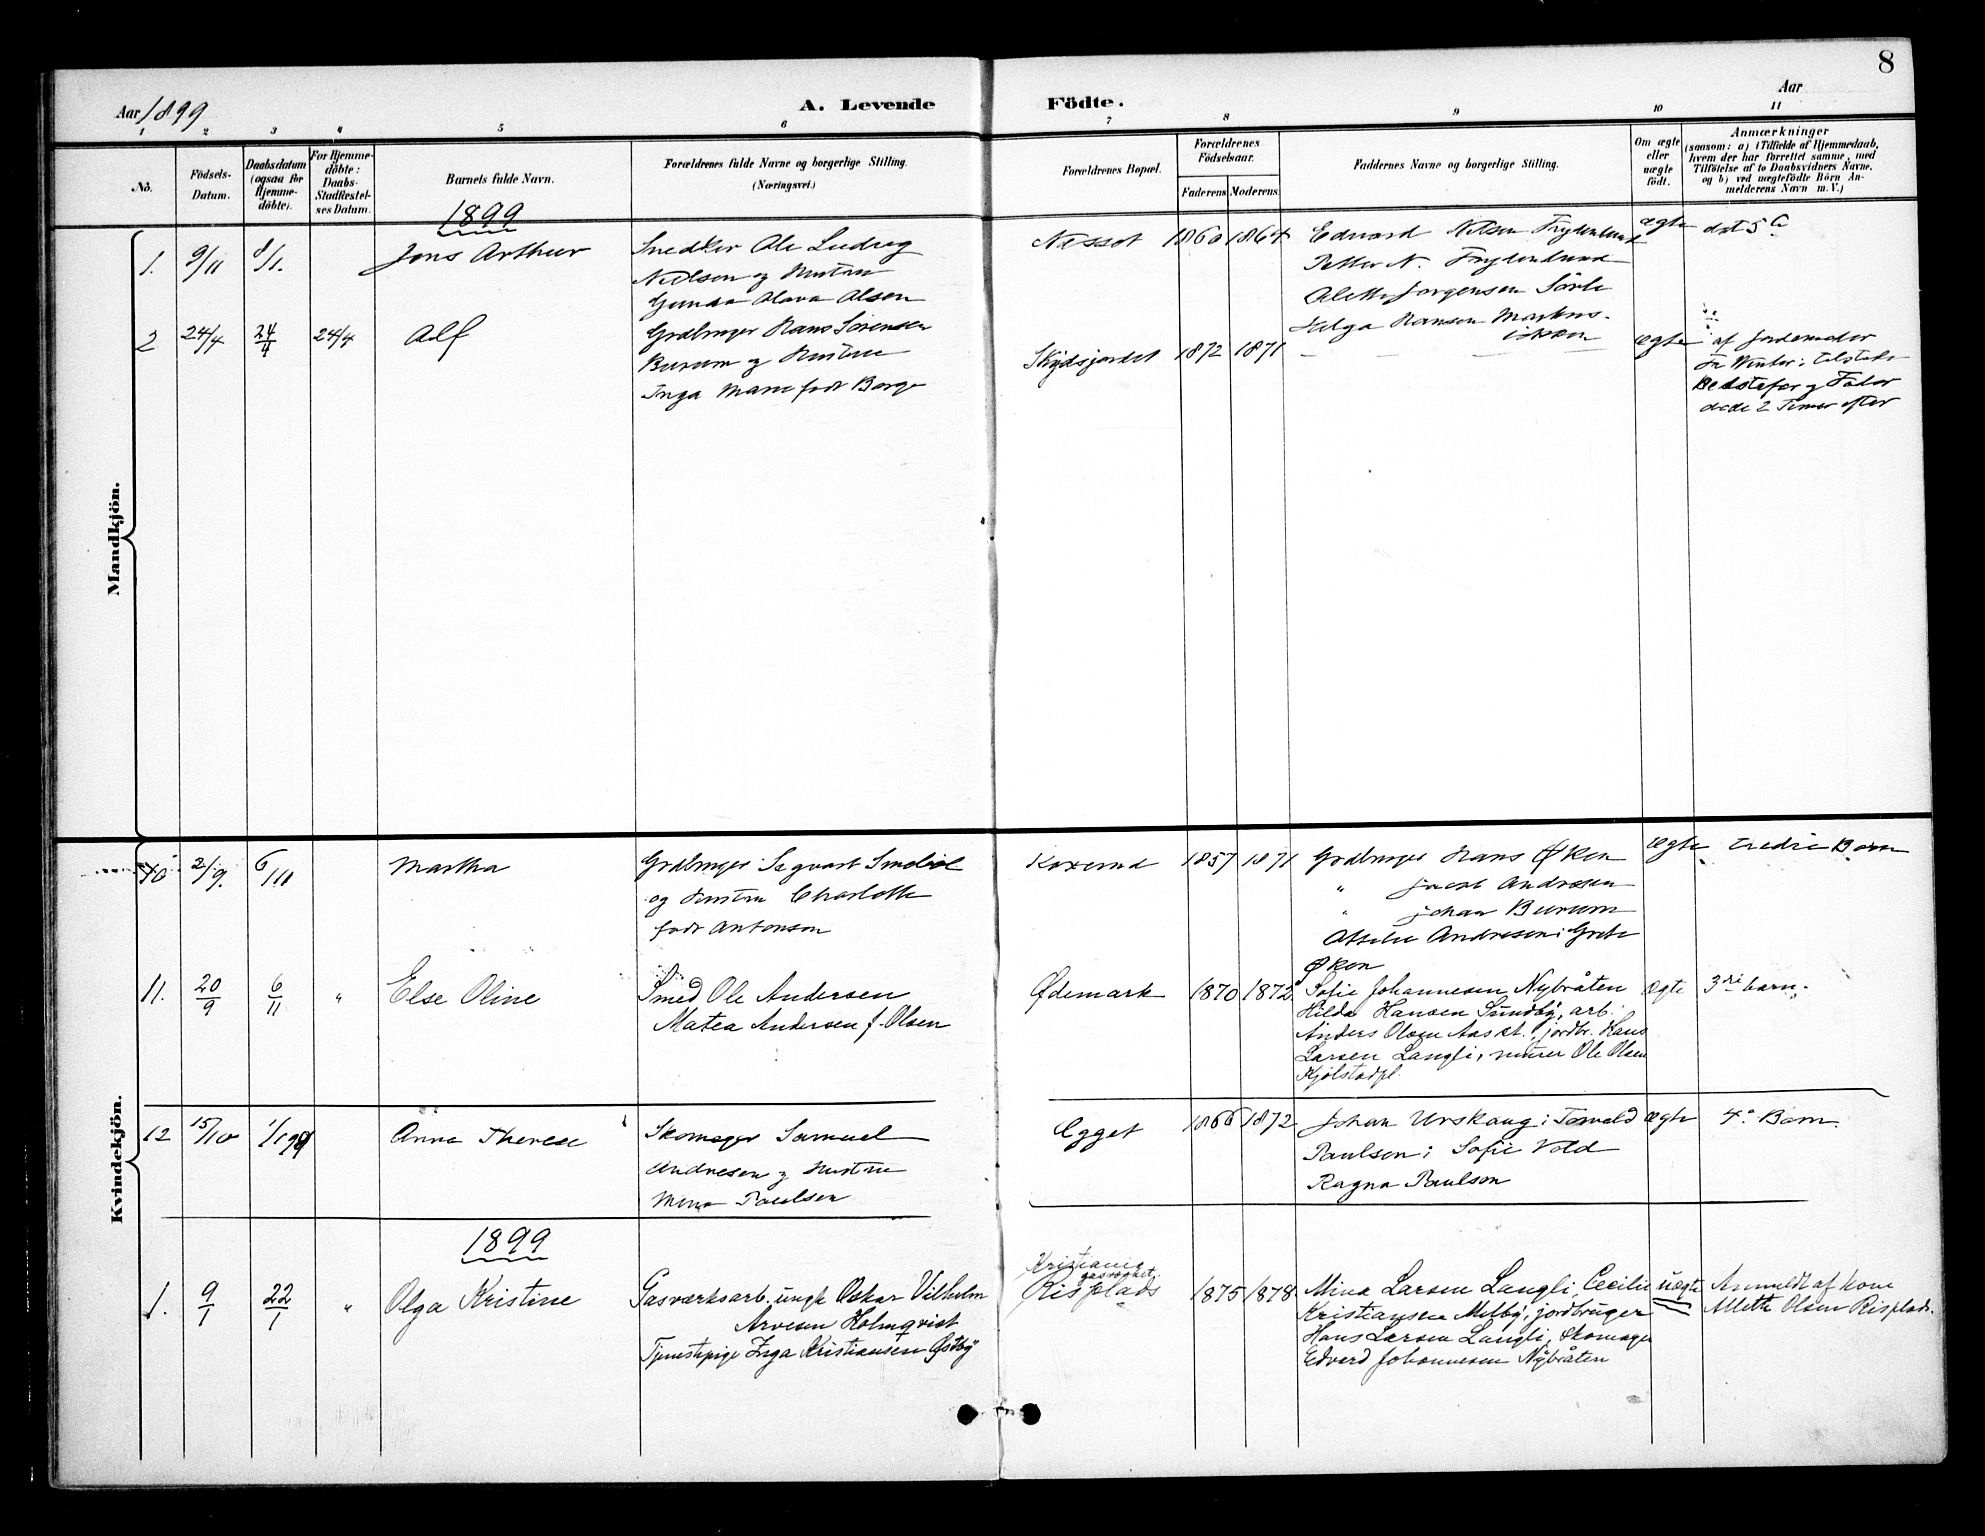 8
Aar 1899
A. Levende Födte.
Aar
1 2 3 4 5 6 7 8 9 10 11
No.
Födsels-Datum.
Daabsdatum (ogsaa for Hjemme-döbte).
For Hjemme-döbte: Daabs-Stadfæstel-ses Datum.
Barnets fulde Navn.
Forældrenes fulde Navne og borgerlige Stilling.
(Næringsvei.)
Forældrenes Bopæl.
Forældrenes Födselsaar.
Faderens Moderens
Faddernes Navne og borgerlige Stilling.
Om ægte eller uægte födt.
Anmærkninger
(saasom: a) i Tilfælde af Hjemmedaab,
hvem der har forrettet samme, med
Tilföielse af to Daabsvidners Navne,
og b) ved uægtefödte Börn An-
melderens Navn m. V.)
Mandkjön.
1899
1. 9/11 8/1. Jens Arthur
Snedker Ole Ludvig
Nielsen og Hustru
Gunda Olava Olsen
Nessot 1860 1864
Edvard Nilsen Frydenlund
Petter N. Frydenlund
Alette Jorgensen Sörli
Helga Hansen
ægte
det 5
2 24/4 24/4 24/4 Alf
Grdbruger Hans Sörensen
Burum og Hustru
Inga Marie født Borge
Skydsjordet 1872 1871
ægte
af Jordemoder
Fr Winter; tilstede
Bedstefar og Fader
døde 2 Timer efter
Kvindekjön.
10 2/9. 6/11 Martha
Grdbruger Sigvart
og Hustru Charlotte
født Antonsen
1857 1871
Grdbruger Hans Øken
" Jacob Andresen
" Johan Burum
Andresen i Grete
Øken
ægte tredie Barn
11. 20/9 6/11 " Else Oline
Smed Ole Andersen
Matea Andersen f. Olsen
Ødemark 1870 1872
Sofie Johannesen Nybråten
Hilda Hansen Sundby, arb.
Anders Olsen Aaskt. jordbr. Hans
Larsen Langli, murer Ole Olsen
Kjölstadpl.
ægte 3die barn.
12 15/10 1/1 99 Anna Therese
Skomager Samuel
Andresen og Hustru
Mina Paulsen
Egget 1866 1872
Johan Urskaug; Torvald
Paulsen; Sofie Vold
Ragna Paulson
ægte 4. Barn.
1899
1. 9/1 22/1 " Olga Kristine
Gasværksarb. ungk Oskar Vilhelm
Arvesen Holmqvist
Tjenestepige Inga Kristiansen Østby
Kristiania gasværket
Risplads
1875 1878
Mina Larsen Langli, Cecilie
Kristiansen Melby, jordbruger
Hans Larsen Langli, Skomager
Edvard Johannesen Nybråten
uægte
Anmeldt af kone
Alette Olsen Risplads.